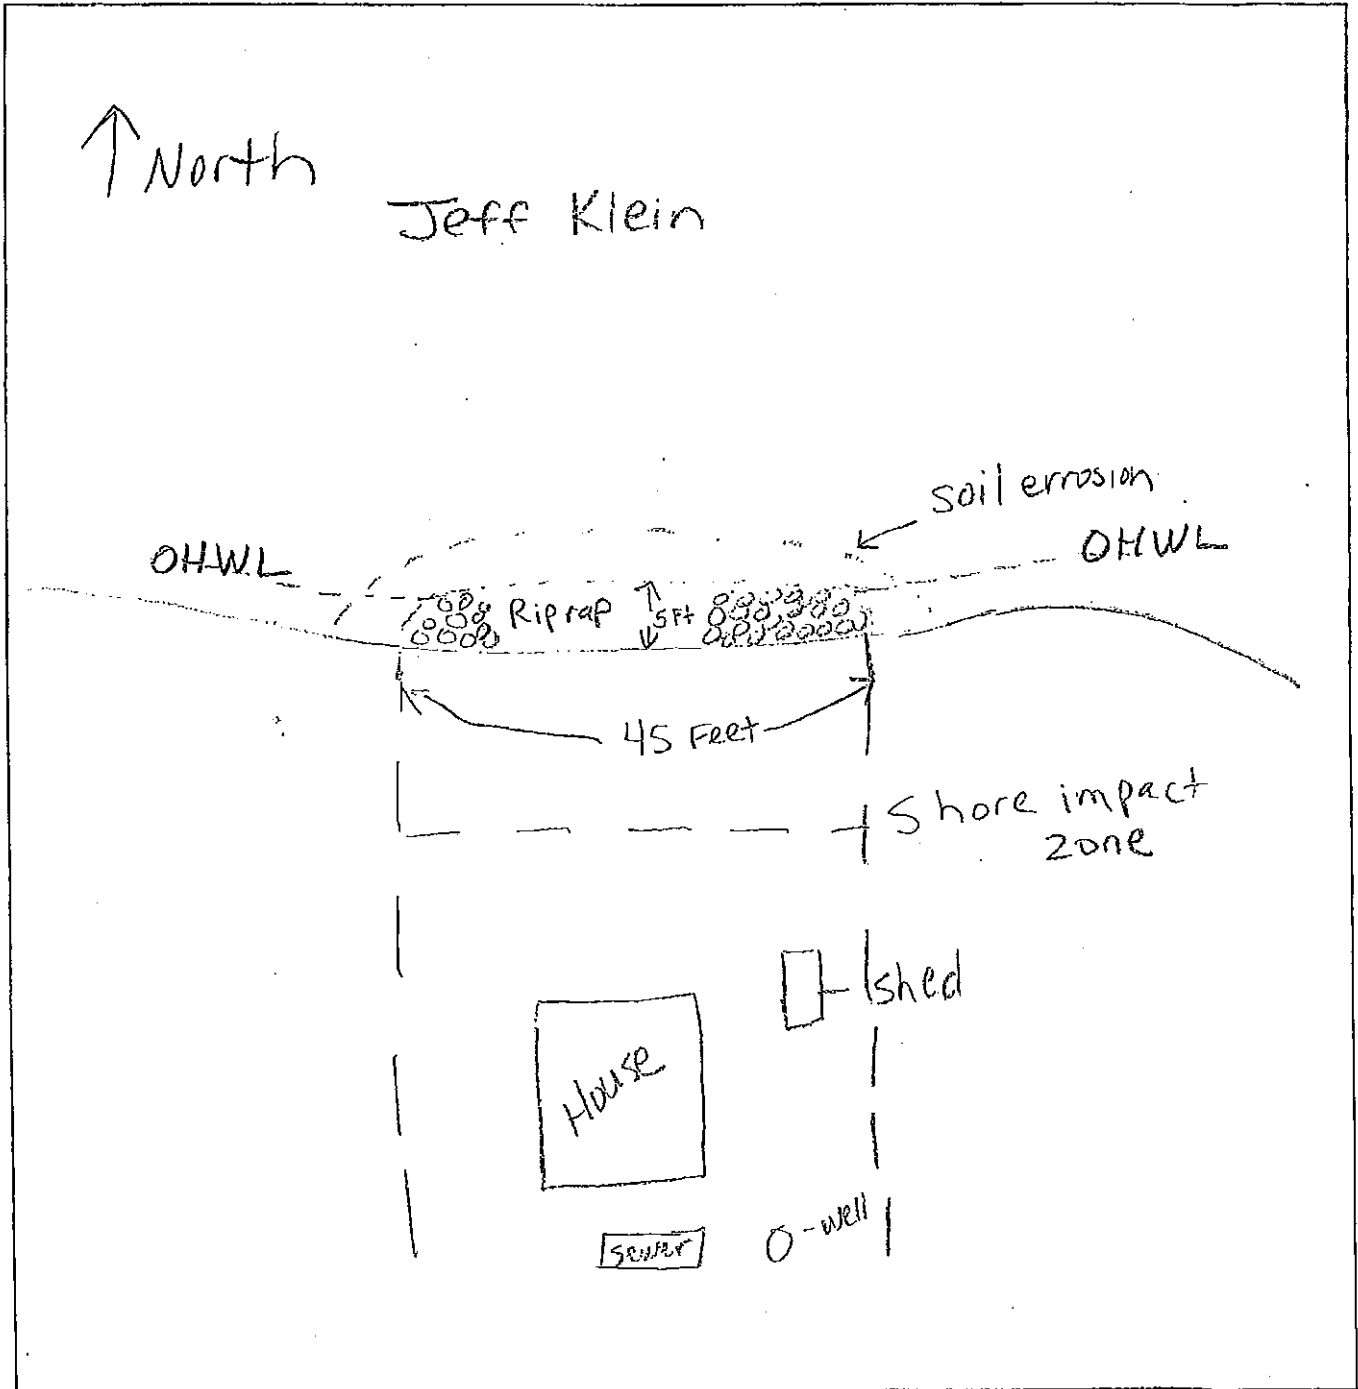 North
Jeff Klein
soil errosion
OHWL
OHWL
Riprap
5Ft
45 Feet
Shore impact
zone
shed
House
sewer
well